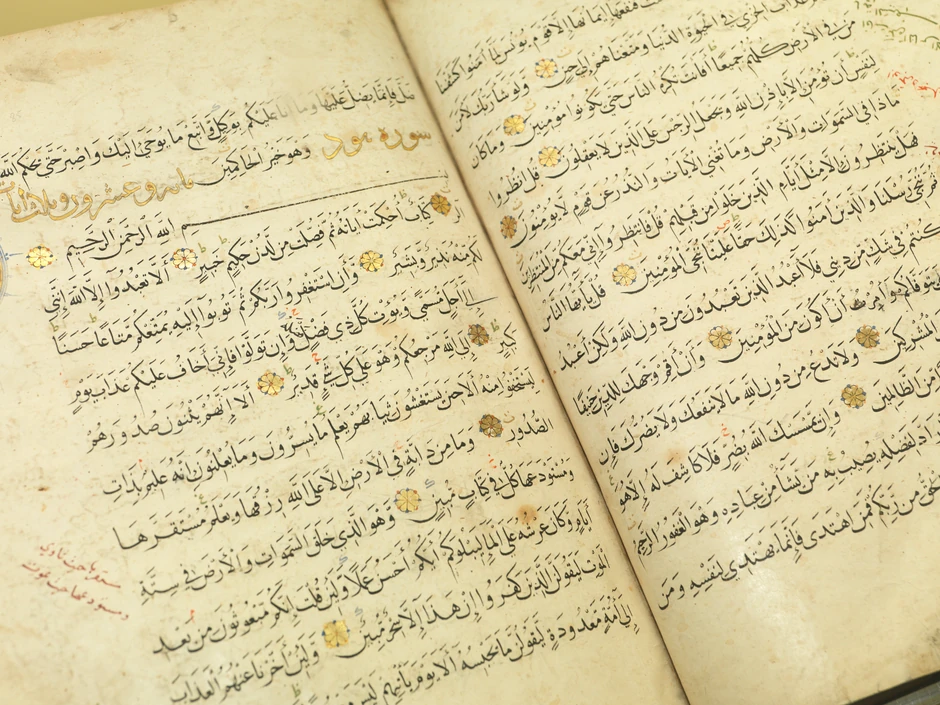 فنفعها إيمانها إلا قوم يونس لما آمنوا كشفنا
عذاب الخزي في الحيوة الدنيا ومتعناهم إلى حين ولو شاء ربك لآمن
من في الأرض كلهم جميعا أفأنت تكره الناس حتى يكونوا مؤمنين وما كان
لنفس أن تؤمن إلا بإذن الله ويجعل الرجس على الذين لا يعقلون قل انظروا
ماذا في السموات والأرض وما تغني الآيات والنذر عن قوم لا يؤمنون
فهل ينتظرون إلا مثل أيام الذين خلوا من قبلهم قل فانتظروا إني معكم من المنتظرين
ثم ننجي رسلنا والذين آمنوا كذلك حقا علينا ننجي المؤمنين قل يا أيها الناس
كنتم في شك من ديني فلا أعبد الذين تعبدون من دون الله ولكن أعبد
وأمرت أن أكون من المؤمنين وأن أقم وجهك للدين حنيفا
المشركين ولا تدع من دون الله ما لا ينفعك ولا يضرك فإن
من الظالمين وإن يمسسك الله بضر فلا كاشف له إلا هو
راد لفضله يصيب به من يشاء من عباده وهو الغفور الرحيم
الحق من ربكم فمن اهتدى فإنما يهتدي لنفسه ومن
ضل فإنما يضل عليها وما أنا عليكم بوكيل واتبع ما يوحى إليك واصبر حتى يحكم الله
وهو خير الحاكمين سورة هود
بسم الله الرحمن الرحيم
الر كتاب أحكمت آياته ثم فصلت من لدن حكيم خبير ألا تعبدوا إلا الله إنني
لكم منه نذير وبشير وأن استغفروا ربكم ثم توبوا إليه يمتعكم متاعا حسنا
إلى أجل مسمى ويؤت كل ذي فضل فضله وإن تولوا فإني أخاف عليكم عذاب يوم
كبير إلى الله مرجعكم وهو على كل شيء قدير ألا إنهم يثنون صدورهم
ليستخفوا منه ألا حين يستغشون ثيابهم يعلم ما يسرون وما يعلنون إنه عليم بذات
الصدور وما من دابة في الأرض إلا على الله رزقها ويعلم مستقرها
ومستودعها كل في كتاب مبين وهو الذي خلق السموات والأرض في ستة
أيام وكان عرشه على الماء ليبلوكم أيكم أحسن عملا ولئن قلت إنكم مبعوثون من بعد
الموت ليقولن الذين كفروا إن هذا إلا سحر مبين ولئن أخرنا عنهم العذاب
إلى أمة معدودة ليقولن ما يحبسه ألا يوم يأتيهم ليس